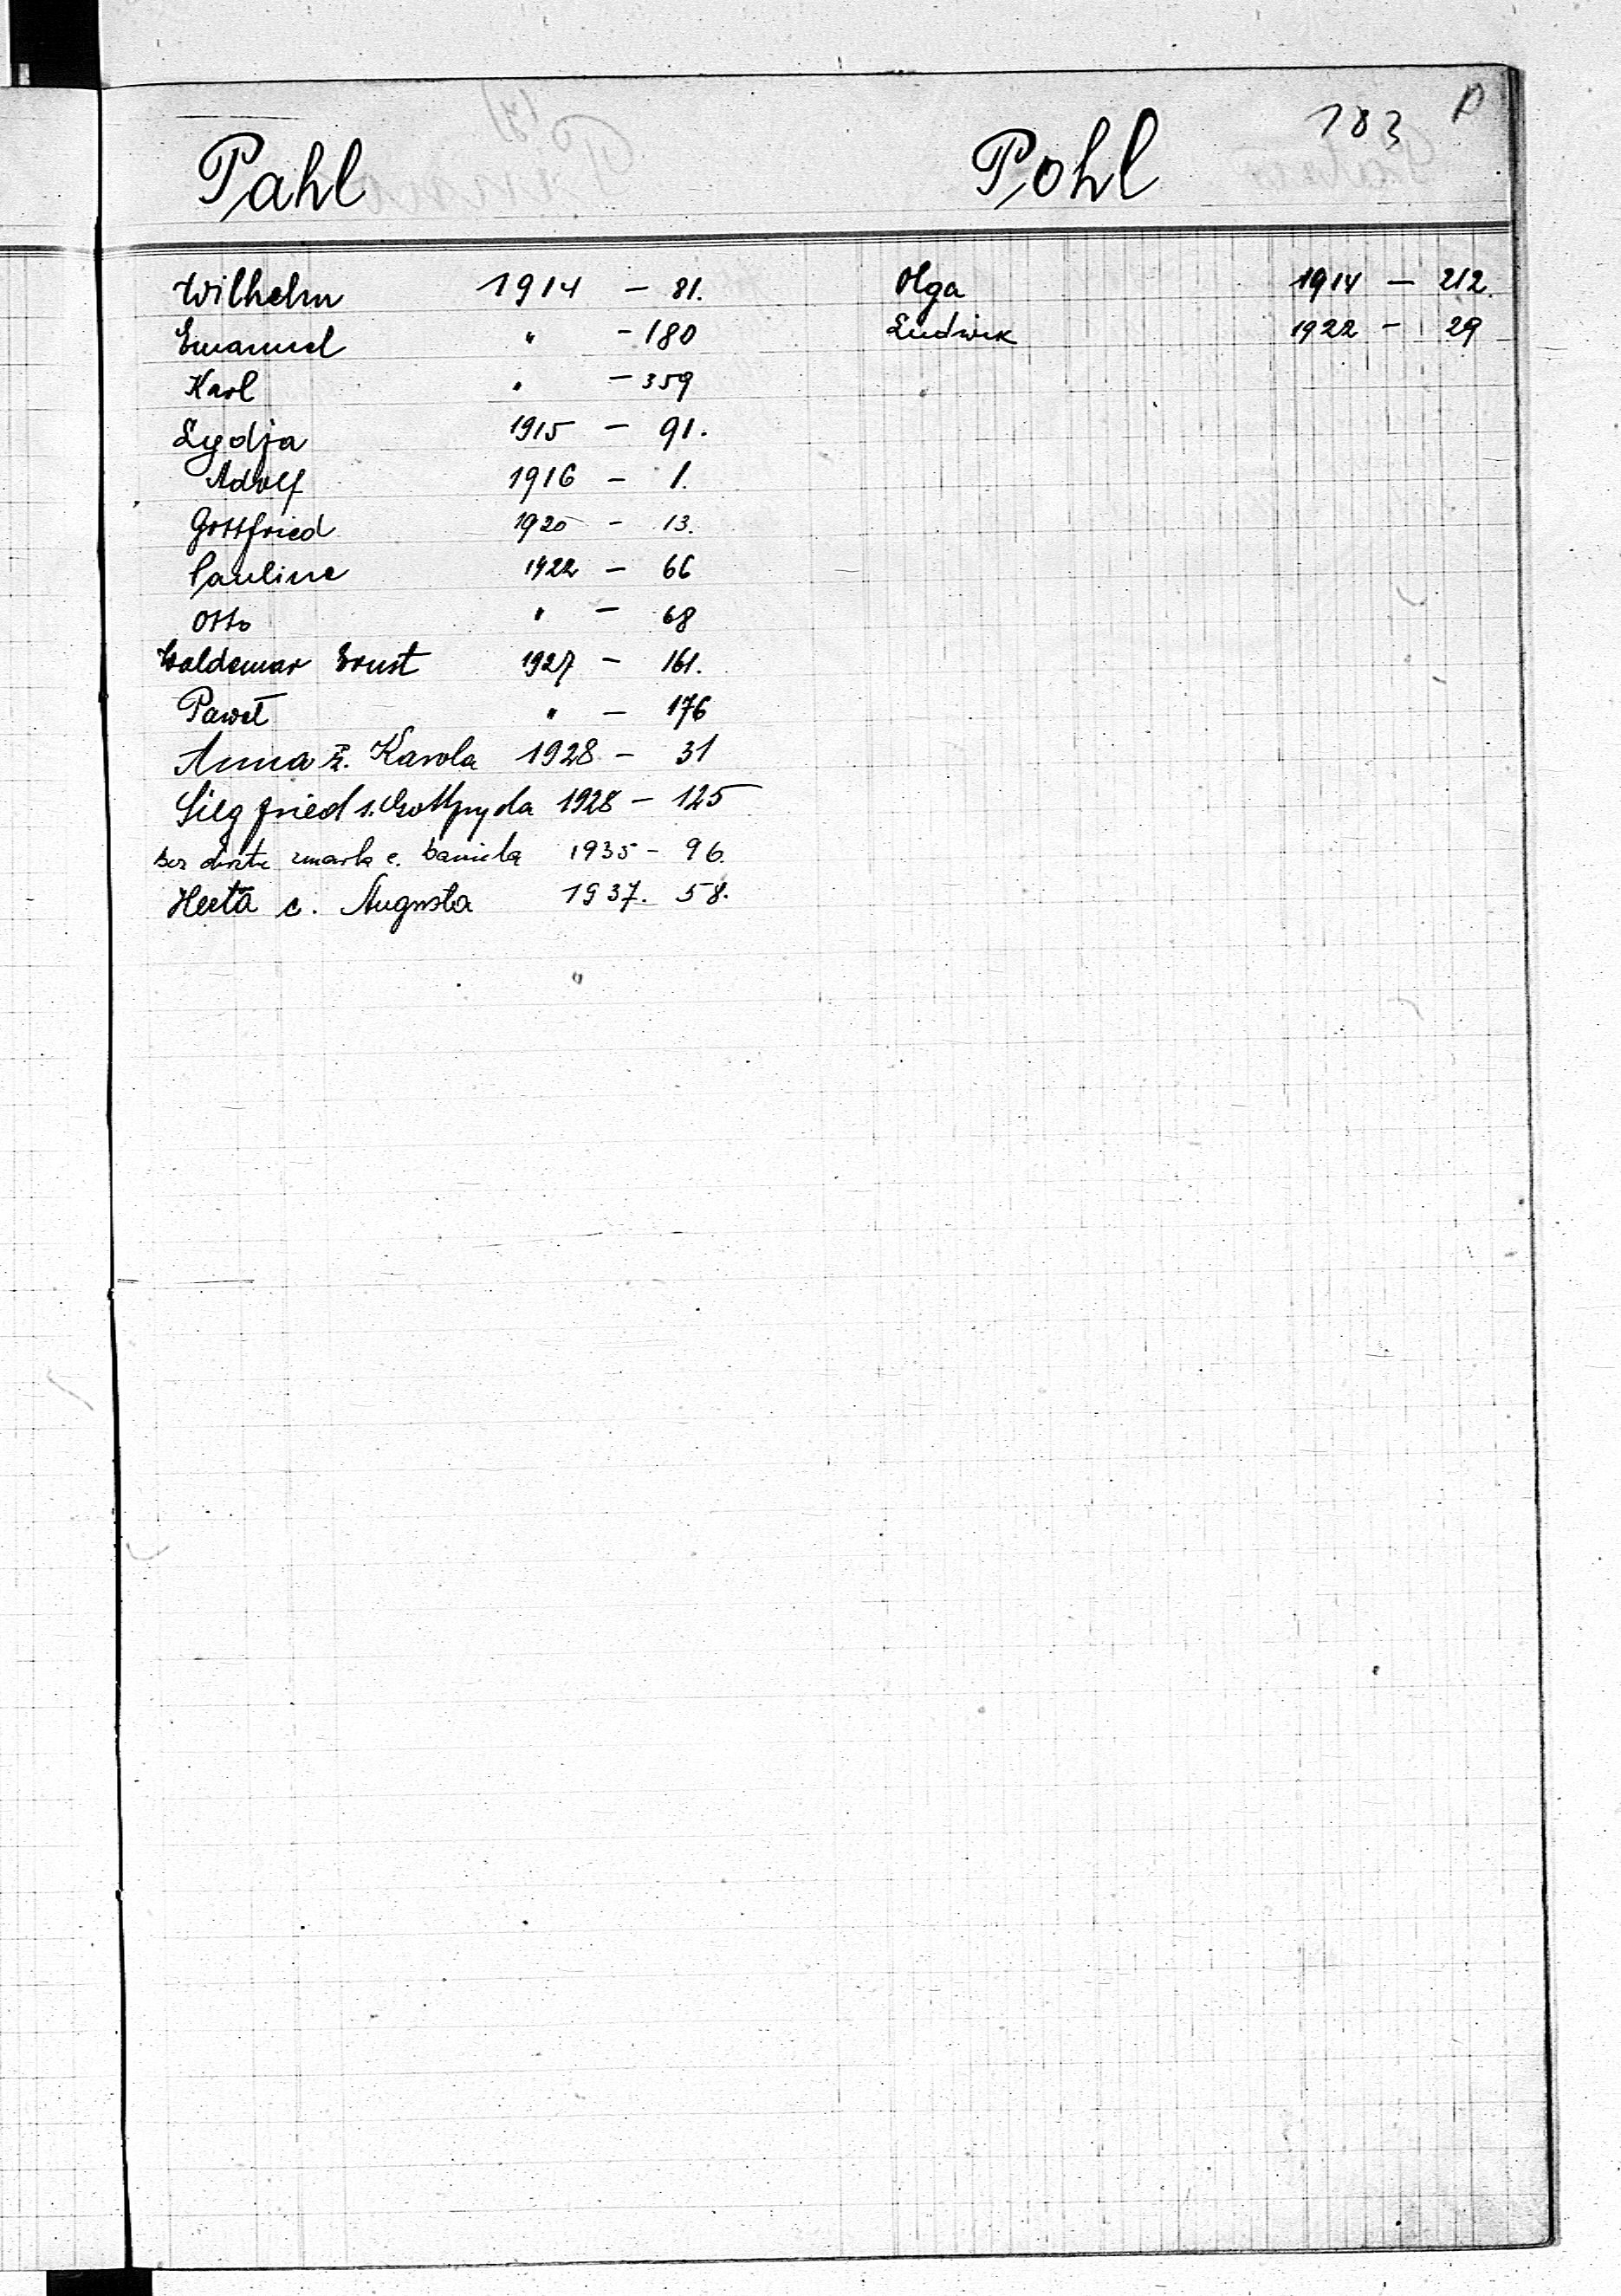 183 P
Pahl
Wilhelm 1914 - 81.
Emanuel " - 180
Karl " - 359
Lydja 1915 - 91.
Adolf 1916 - 1.
Gottfried 1920 - 13.
Pauline 1922 - 66
Otto " - 68
Waldemar Ernst 1927 - 161.
Paweł " - 176
Anna ż. Karola 1928 - 31
Siegfried s. Gottfryda 1928 - 125
bez chrztu zmarła c. Daniela 1935 - 96.
Herta c. Augusta 1937. 58.
Pohl
Olga 1914 - 212.
Ludwik 1922 - 29